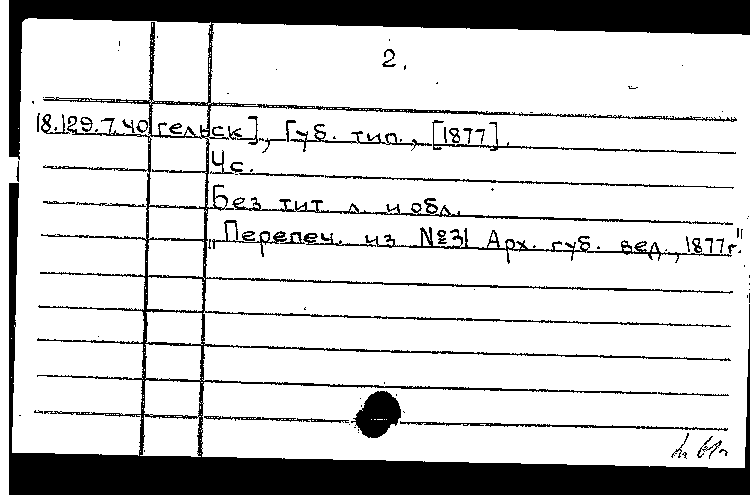 2.
18.129.7.40 гельск], Губ. тип., [1877].
4 с.
Без тит. л. и обл.
"Перепеч. из №31 Арх. губ. вед., 1877г."